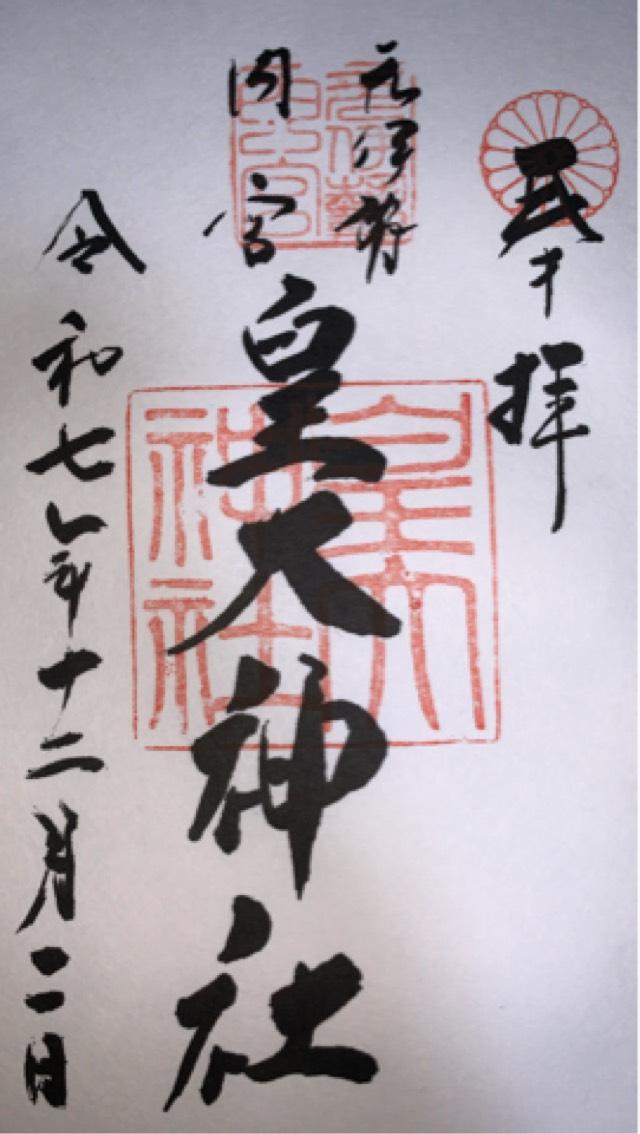 奉拝
元伊勢
内宮
皇大神社
令和七年十二月二日
元伊勢
内宮
皇大
神社